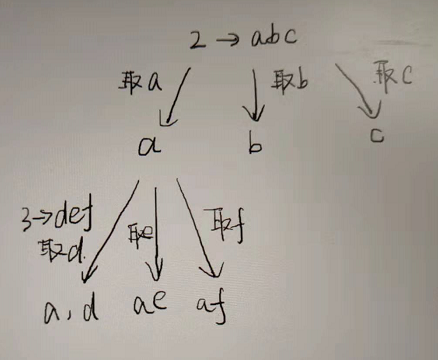 2→abc
取a 取b 取c
a b c
3→def
取d 取e 取f
a,d ae af